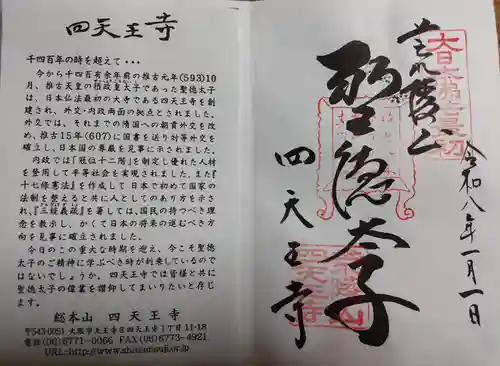 四天王寺
千四百年の時を超えて・・・
今から千四百有余年前の推古元年(593)10
月、推古天皇の摂政皇太子であった聖徳太子
は、日本仏法最初の大寺である四天王寺を創
建され、外交・内政両面の拠点とされました。
外交では、それまでの隋国への朝貢外交を改
め、推古15年(607)に国書を送り対等外交を
確立し、日本国の尊厳を見事に示されました。
内政では『冠位十二階』を制定し優れた人材
を登用して平等社会を実現されました。また『
十七條憲法』を作成して日本で初めて国家の
法制を整えると共に人としてのあり方を示さ
れ、『三経義疏』を著しては、国民の持つべき理
念を教示し、かくて日本の将来の逞むべき方
向を見事に確立されました。
今日のこの重大な時期を迎え、今こそ聖徳
太子のご精神に学ぶべき時が到来しているので
はないでしょうか。四天王寺では皆様と共に
聖徳太子の偉業を讃仰してまいりたいと存じ
ます。
総本山 四天王寺
〒543-0051 大阪市天王寺区四天王寺1丁目11-18
電話(06)6771-0066 FAX(06)6773-4921
URL:http://www.shitennoji.or.jp
荒陵山
聖徳太子
四天王寺
令和八年一月一日